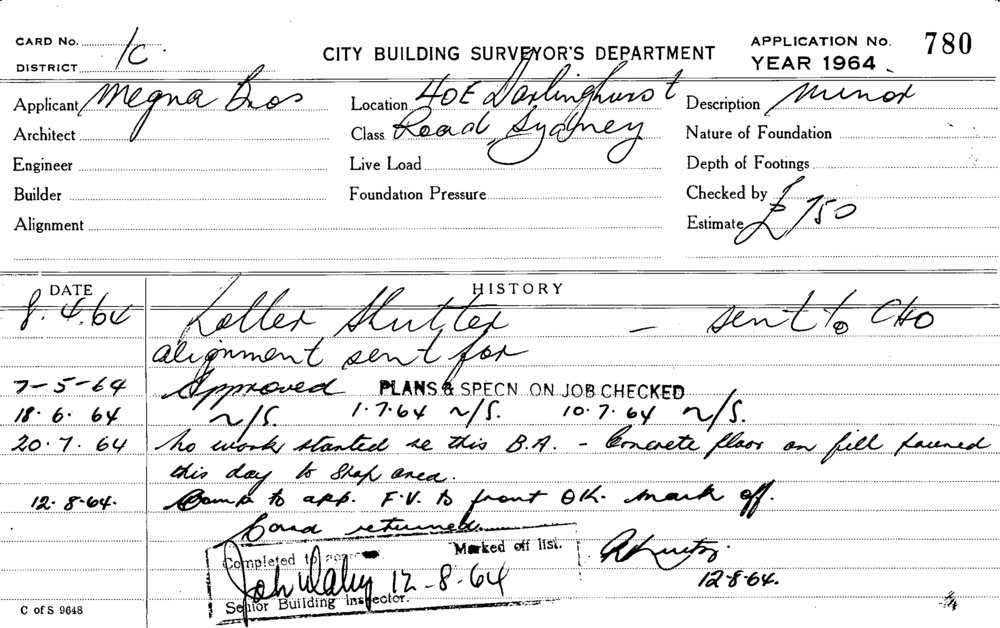 CARD No. 1C.
DISTRICT
CITY BUILDING SURVEYOR'S DEPARTMENT
APPLICATION No. 780
YEAR 1964
Applicant Megna Bros
Location 40E Darlinghurst
Description Minor
Architect
Class Road, Sydney
Nature of Foundation
Engineer
Live Load
Depth of Footings
Builder
Foundation Pressure
Checked by
Alignment
Estimate £750
DATE HISTORY
8.4.64 Roller Shutter — sent to CHO
alignment sent for
7-5-64 Approved PLANS & SPECN ON JOB CHECKED
18.6.64 N/S. 1.7.64 N/S. 10.7.64 N/S.
20.7.64 No work started re this B.A. - Concrete floor on fill poured
this day to shop area.
12.8.64. Comp to app. F.V. to front OK. Mark off.
Card returned.
Completed to Marked off list.
12-8-64
Senior Building Inspector.
12.8.64.
C of S 9648